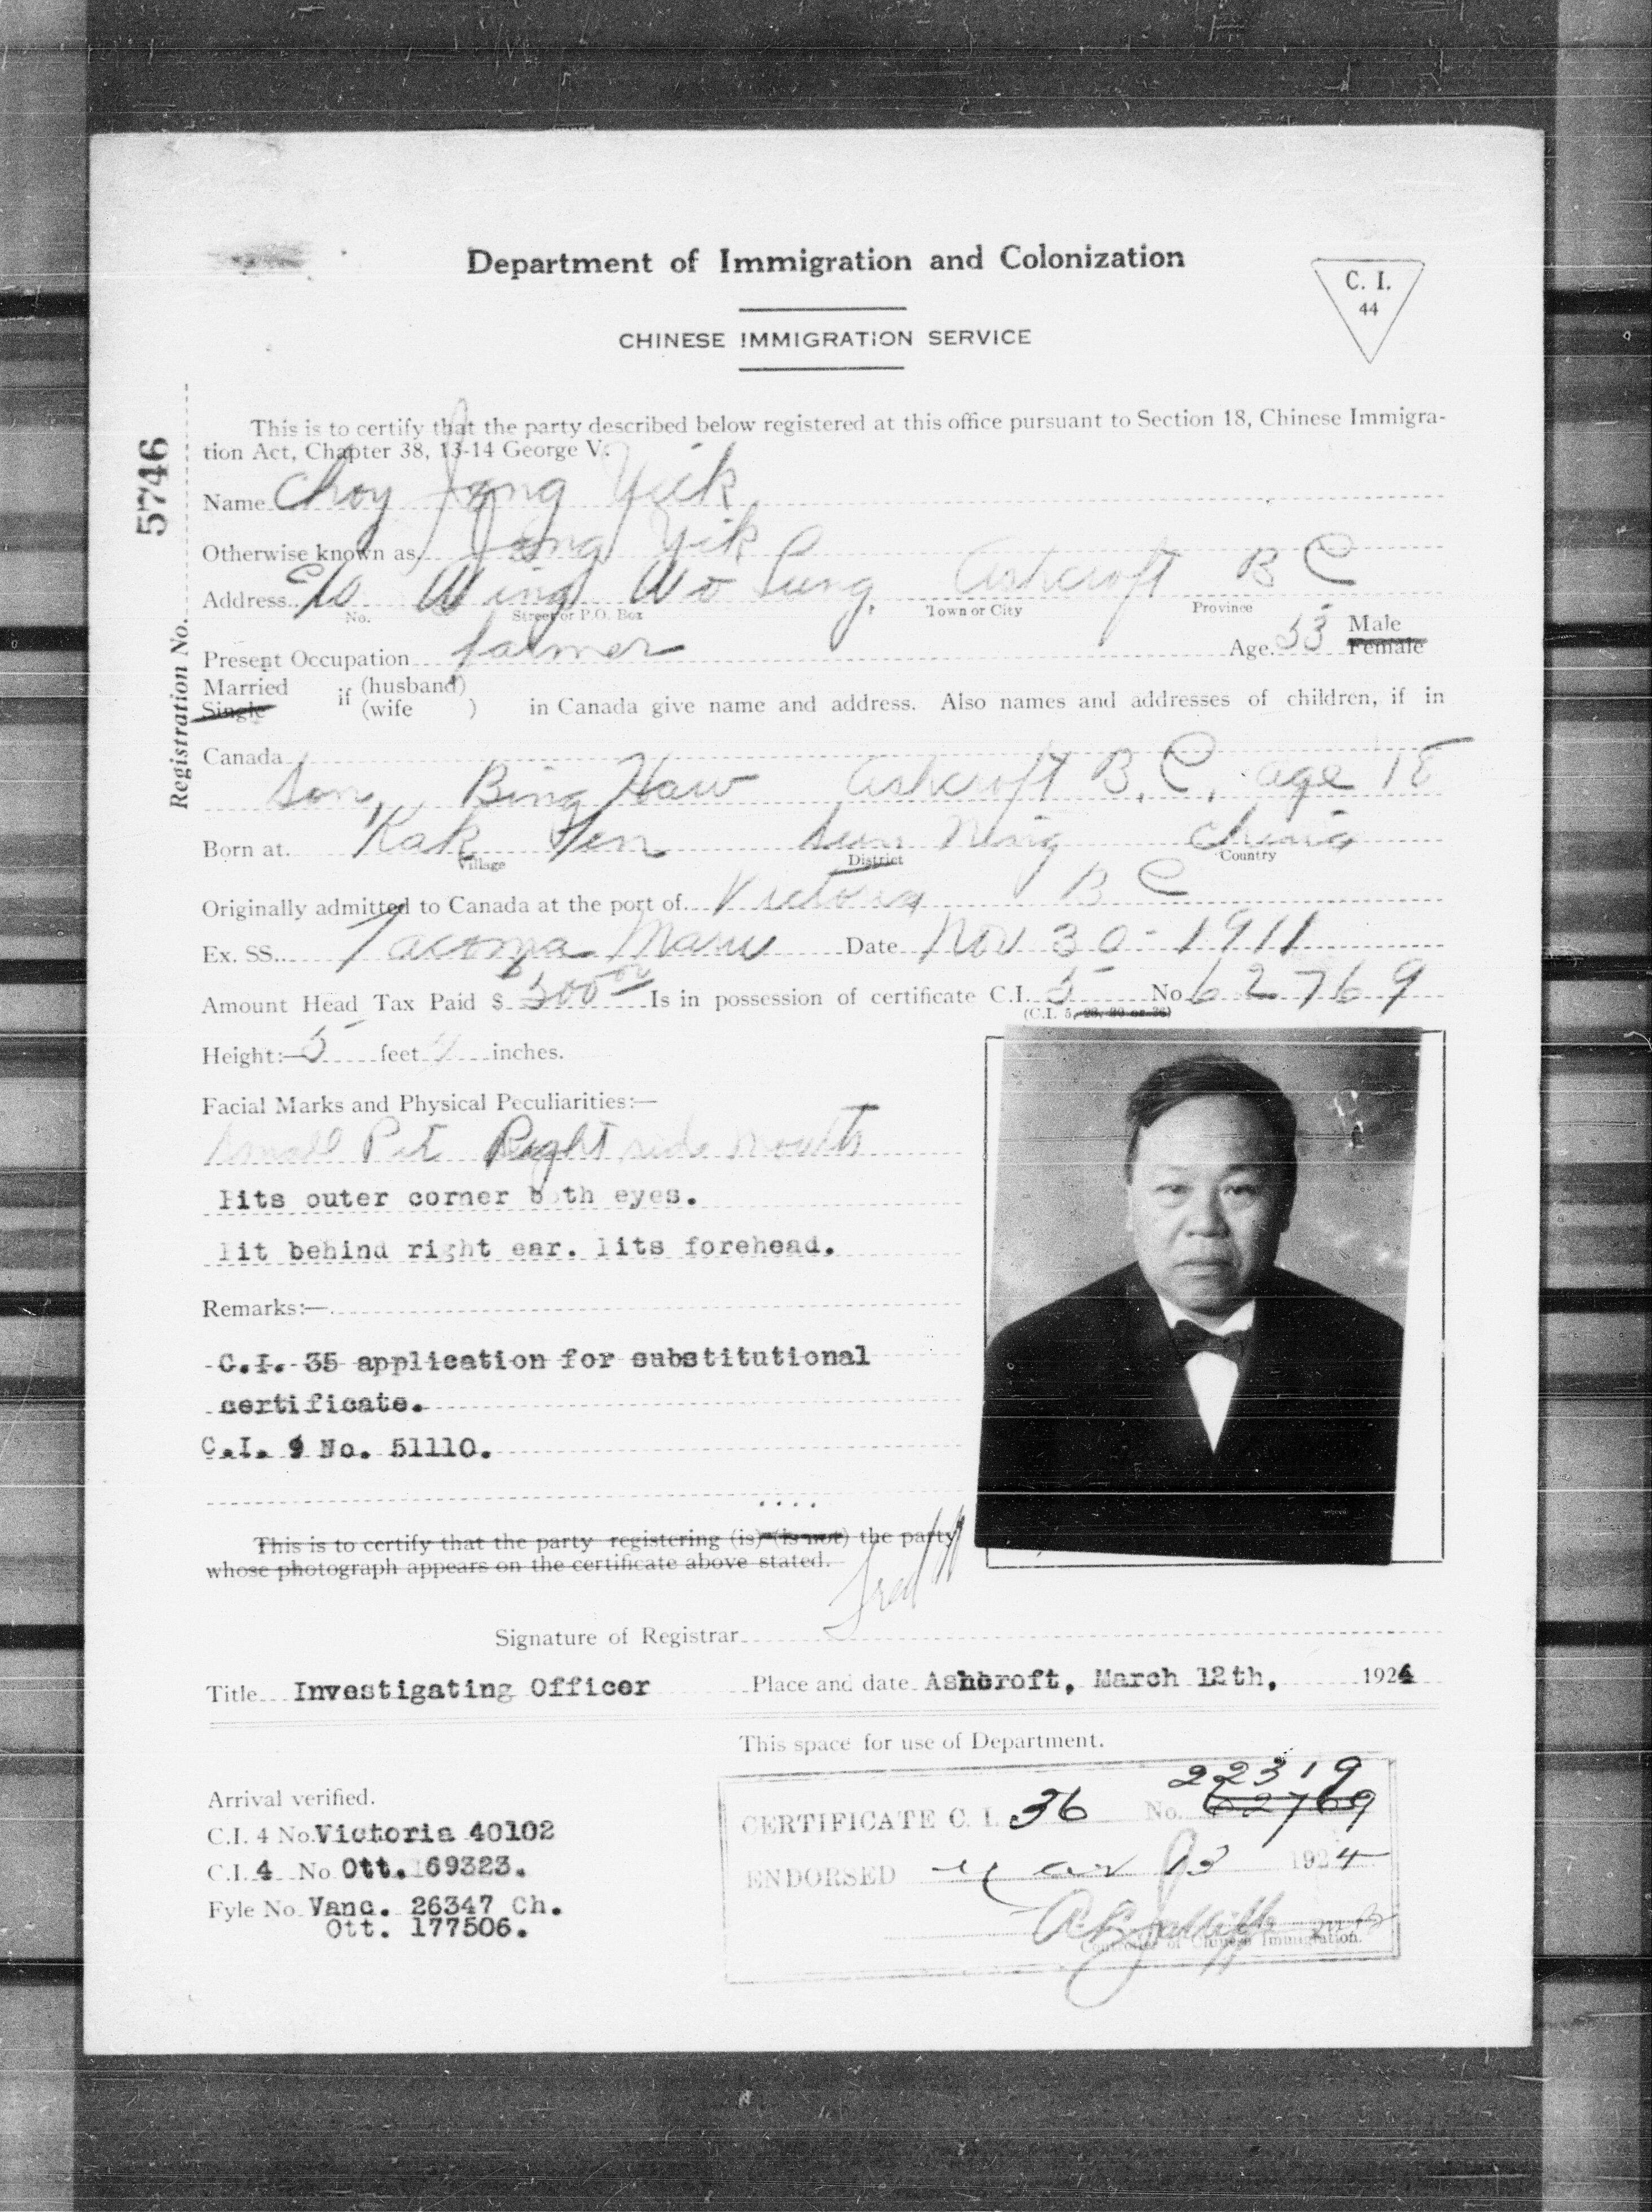 Department of Immigration and Colonization
C. I.
44
CHINESE IMMIGRATION SERVICE
This is to certify that the party described below registered at this office pursuant to Section 18, Chinese Immigra-
tion Act, Chapter 38, 13-14 George V.
Registration No. 5746
Name Choy Jong Yick
Otherwise known as Jong Yik
Address c/o Wing Wo Lung, Ashcroft B C
No. Street or P.O. Box Town or City Province
Present Occupation farmer Age 53 Male
Female
Married if (husband)
Single (wife ) in Canada give name and address. Also names and addresses of children, if in
Canada
Son, Bing Haw Ashcroft B.C. age 18
Born at Kak Sun Ning China
Village District Country
Originally admitted to Canada at the port of Victoria B C
Ex. SS. Tacoma Maru Date Nov 30 - 1911
Amount Head Tax Paid $ 500 00 Is in possession of certificate C.I. 5 No 62769
(C.I. 5, 28, 30 or 36)
Height:— 5 feet 4 inches.
Facial Marks and Physical Peculiarities:—
Small Pit Right side Mouth
Pits outer corner both eyes.
Pit behind right ear. Pits forehead.
Remarks:—
C.I. 35 application for substitutional
certificate.
C.I. 9 No. 51110.
....
This is to certify that the party registering (is) (is not) the party
whose photograph appears on the certificate above stated.
Signature of Registrar Fred
Title Investigating Officer Place and date Ashcroft, March 12th, 1924
This space for use of Department.
Arrival verified.
C.I. 4 No. Victoria 40102
C.I. 4 No Ott. 69323.
Fyle No. Vanc. 26347 Ch.
Ott. 177506.
22319
CERTIFICATE C. I. 36 No. 62769
ENDORSED Mar 13 1924
Controller of Chinese Immigration.